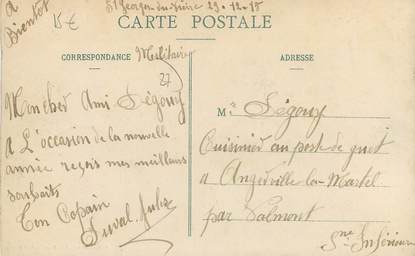 a
Bientot
15 €
St Georges du Vievre 29-12-15
CARTE POSTALE
CORRESPONDANCE Militaire
ADRESSE
27
Mon cher Ami Ségouy
a L'occasion de la nouvelle
année reçois mes meilleurs
souhaits
Ton Copain
Duval Jules
Mr Ségouy
Cuisinier au poste de guet
a Angerville la Martel
par Valmont
Sne Inférieure